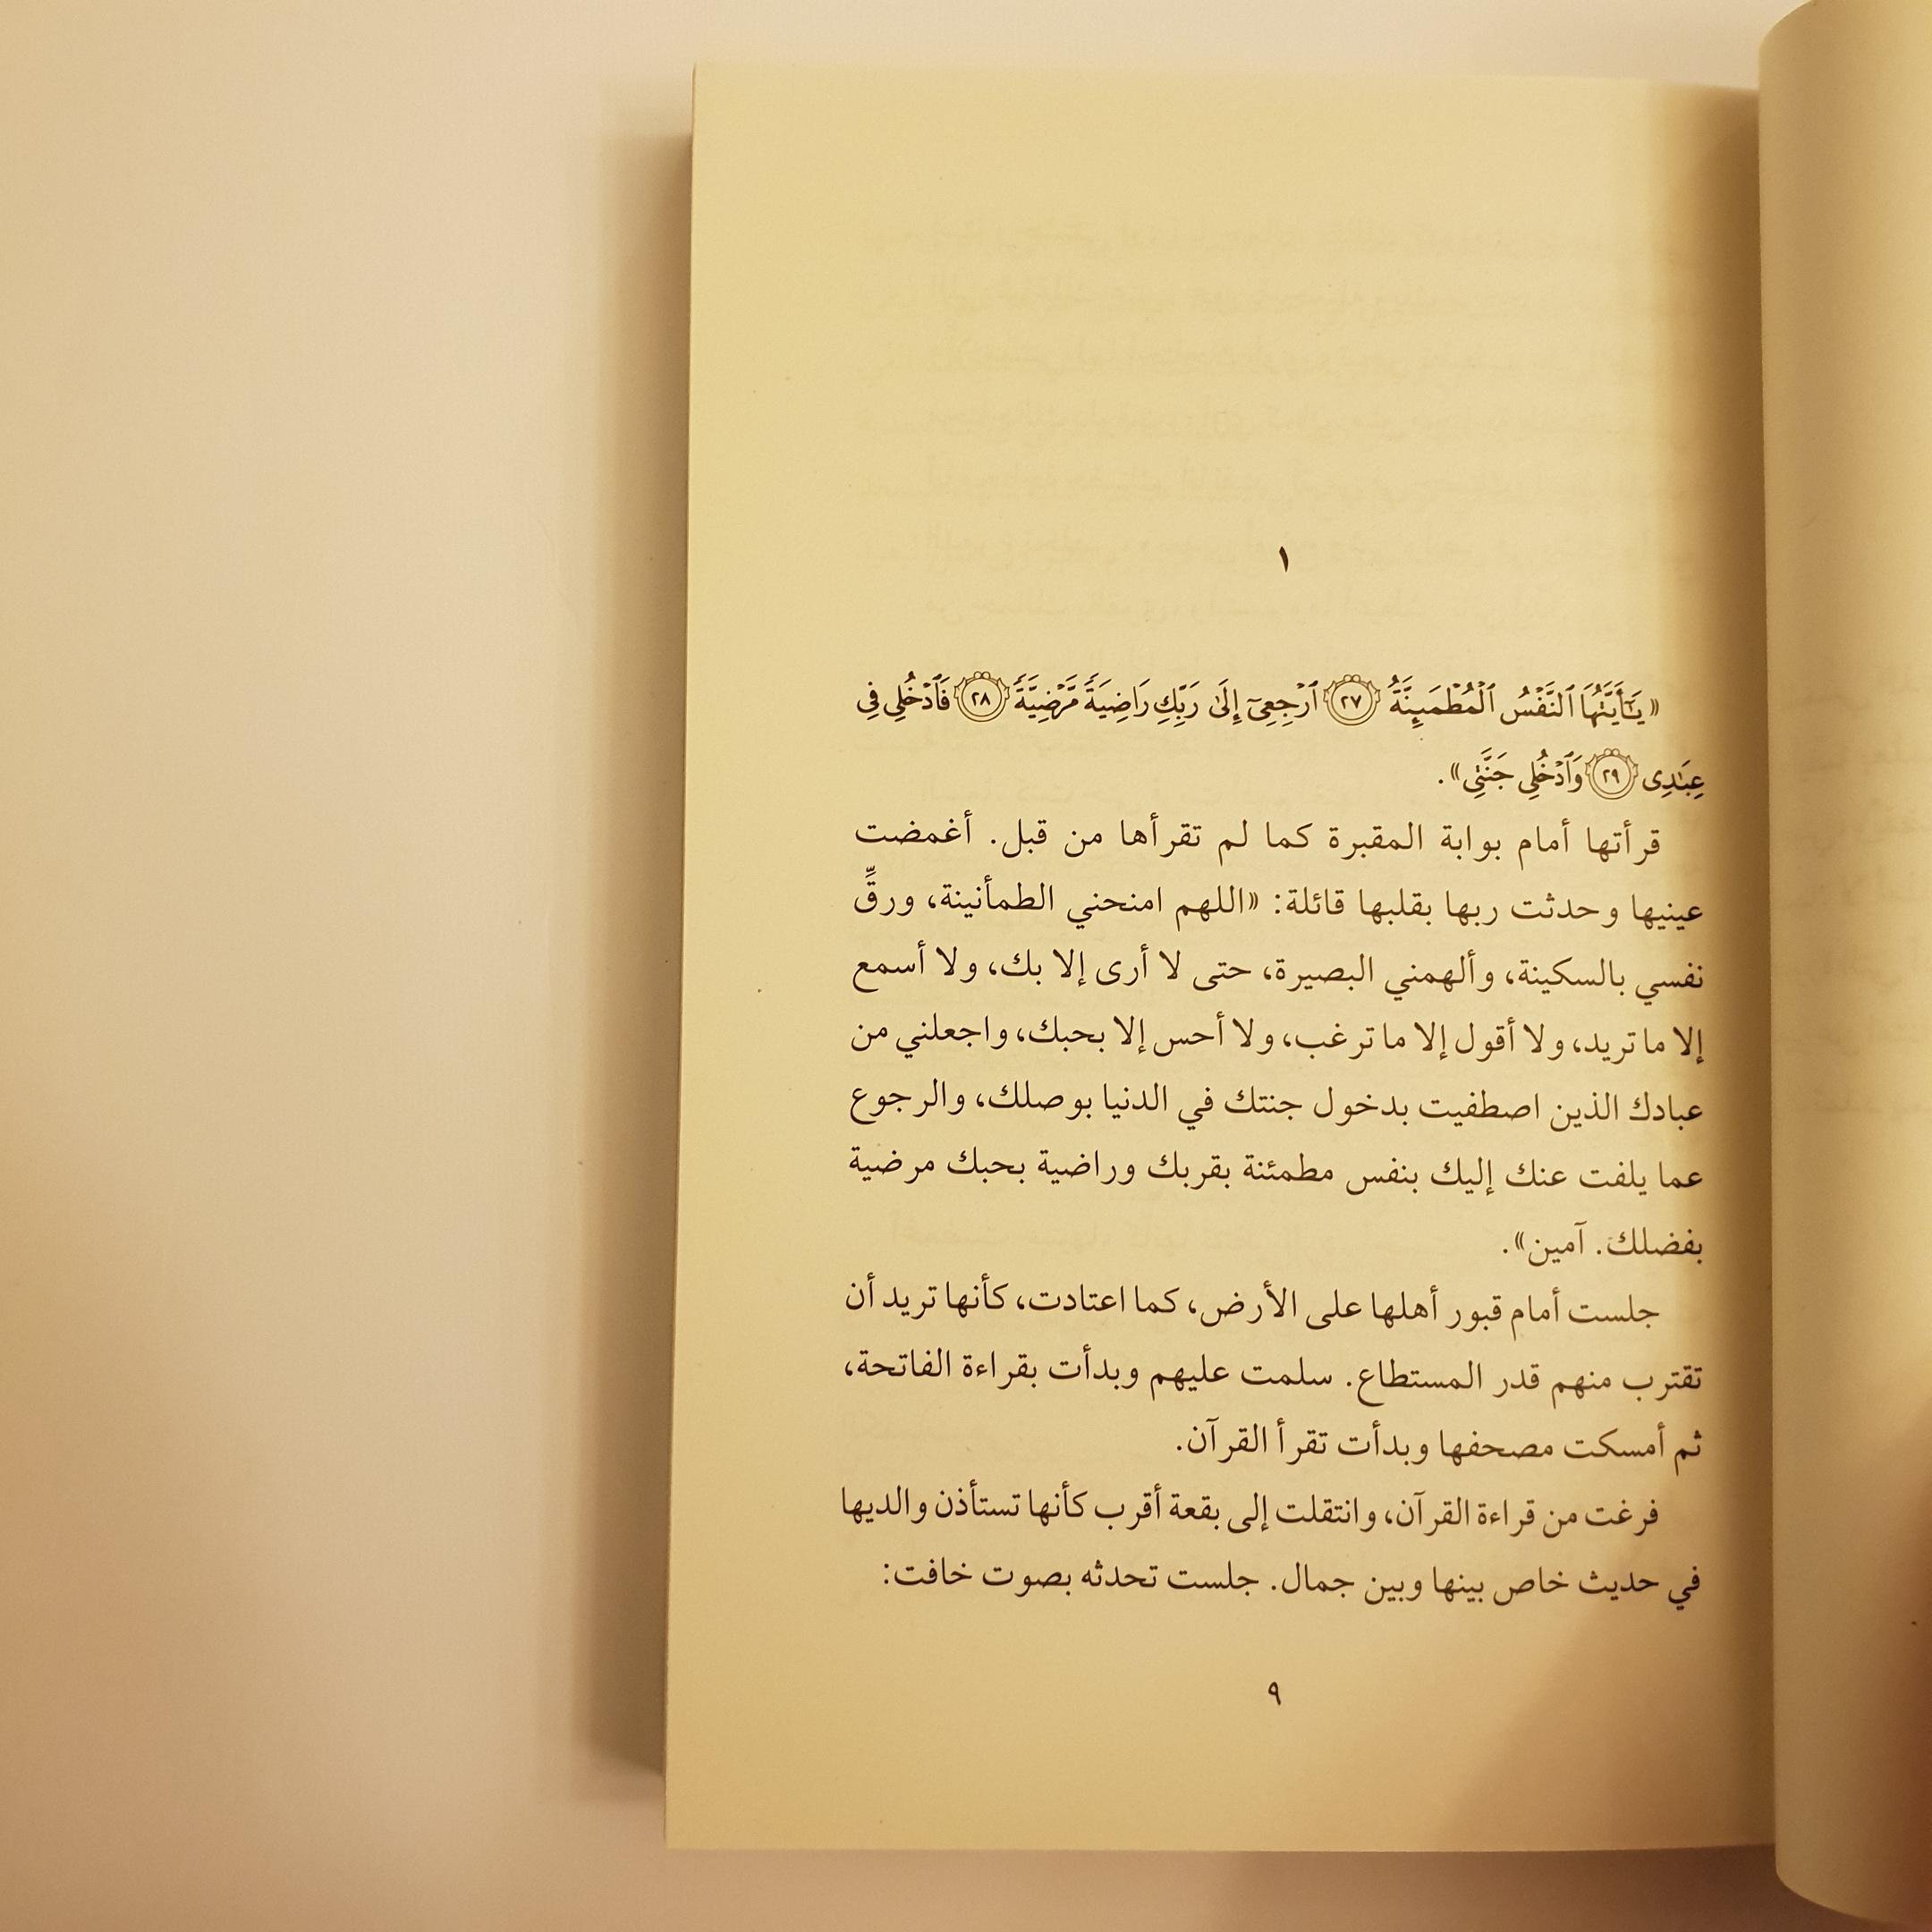 ١
« يَٰٓأَيَّتُهَا ٱلنَّفْسُ ٱلْمُطْمَئِنَّةُ ٢٧ ٱرْجِعِىٓ إِلَىٰ رَبِّكِ رَاضِيَةً مَّرْضِيَّةً ٢٨ فَٱدْخُلِى فِى
عِبَٰدِى ٢٩ وَٱدْخُلِى جَنَّتِى».
قرأتها أمام بوابة المقبرة كما لم تقرأها من قبل. أغمضت
عينيها وحدثت ربها بقلبها قائلة: «اللهم امنحني الطمأنينة، ورقِّ
نفسي بالسكينة، وألهمني البصيرة، حتى لا أرى إلا بك، ولا أسمع
إلا ما تريد، ولا أقول إلا ما ترغب، ولا أحس إلا بحبك، واجعلني من
عبادك الذين اصطفيت بدخول جنتك في الدنيا بوصلك، والرجوع
عما يلفت عنك إليك بنفس مطمئنة بقربك وراضية بحبك مرضية
بفضلك. آمين».
جلست أمام قبور أهلها على الأرض، كما اعتادت، كأنها تريد أن
تقترب منهم قدر المستطاع. سلمت عليهم وبدأت بقراءة الفاتحة،
ثم أمسكت مصحفها وبدأت تقرأ القرآن.
فرغت من قراءة القرآن، وانتقلت إلى بقعة أقرب كأنها تستأذن والديها
في حديث خاص بينها وبين جمال. جلست تحدثه بصوت خافت:
٩